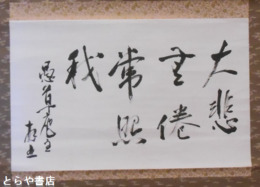 大悲
無倦
常照
我
とらや書店